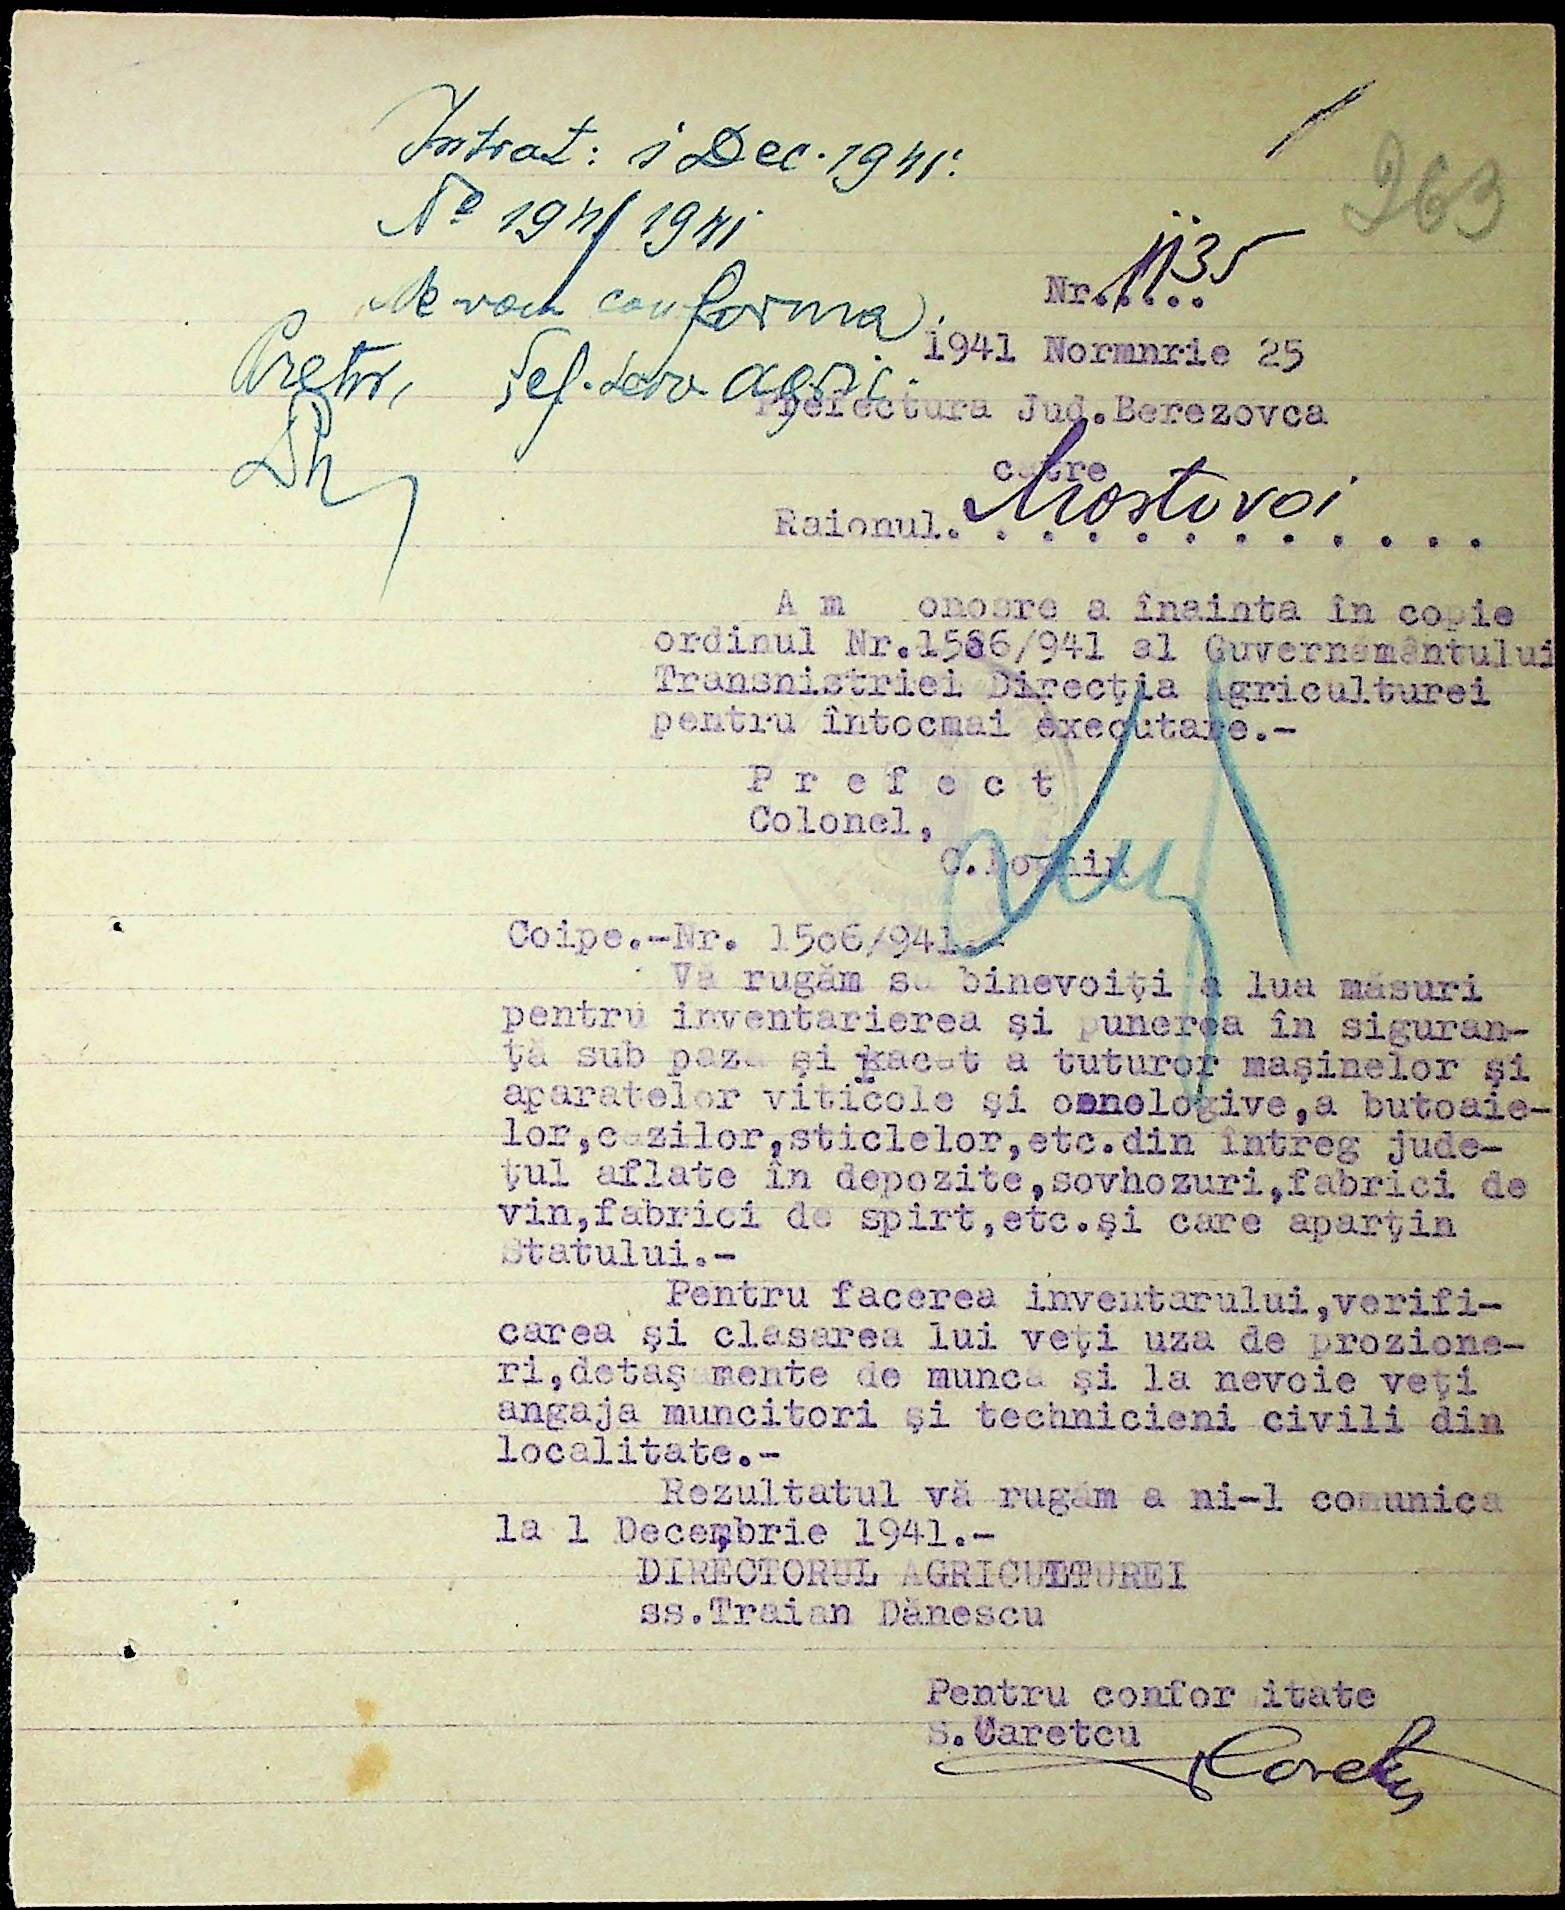 Intrat: 1 Dec. 1941.
263
No 194/1941
Nr. 1135
Ne vom conforma.
1941 Normnrie 25
Pretor, Șef. serv agric.
Prefectura Jud.Berezovca
catre
Raionul. Mostovoi
A m onoare a înainta în copie
ordinul Nr.1506/941 al Guvernământului
Transnistriei Direcţia Agriculturei
pentru întocmai executare.-
P r e f e c t
Colonel,
Coipe.-Nr. 1506/941.-
Vă rugăm sa binevoiţi a lua măsuri
pentru inventarierea şi punerea în siguran-
ţă sub paza şi a tuturor maşinelor şi
aparatelor viticole şi oenologive,a butoaie-
lor,cazilor,sticlelor,etc.din întreg jude-
ţul aflate în depozite,sovhozuri,fabrici de
vin,fabrici de spirt,etc.şi care aparţin
Statului.-
Pentru facerea inventarului,verifi-
carea şi clasarea lui veţi uza de prozione-
ri,detaşamente de munca şi la nevoie veţi
angaja muncitori şi technicieni civili din
localitate.-
Rezultatul vă rugăm a ni-l comunica
la 1 Decembrie 1941.-
DIRECTORUL AGRICULTUREI
ss.Traian Dănescu
Pentru confor itate
S.Caretcu